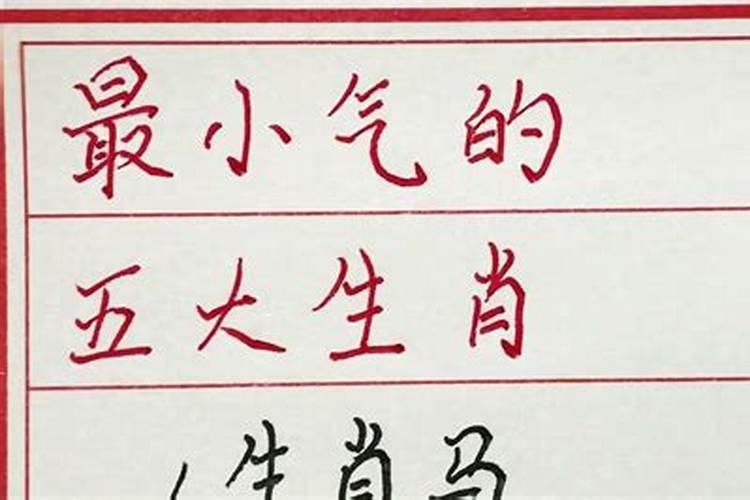 最小气的
五大生肖
生肖马